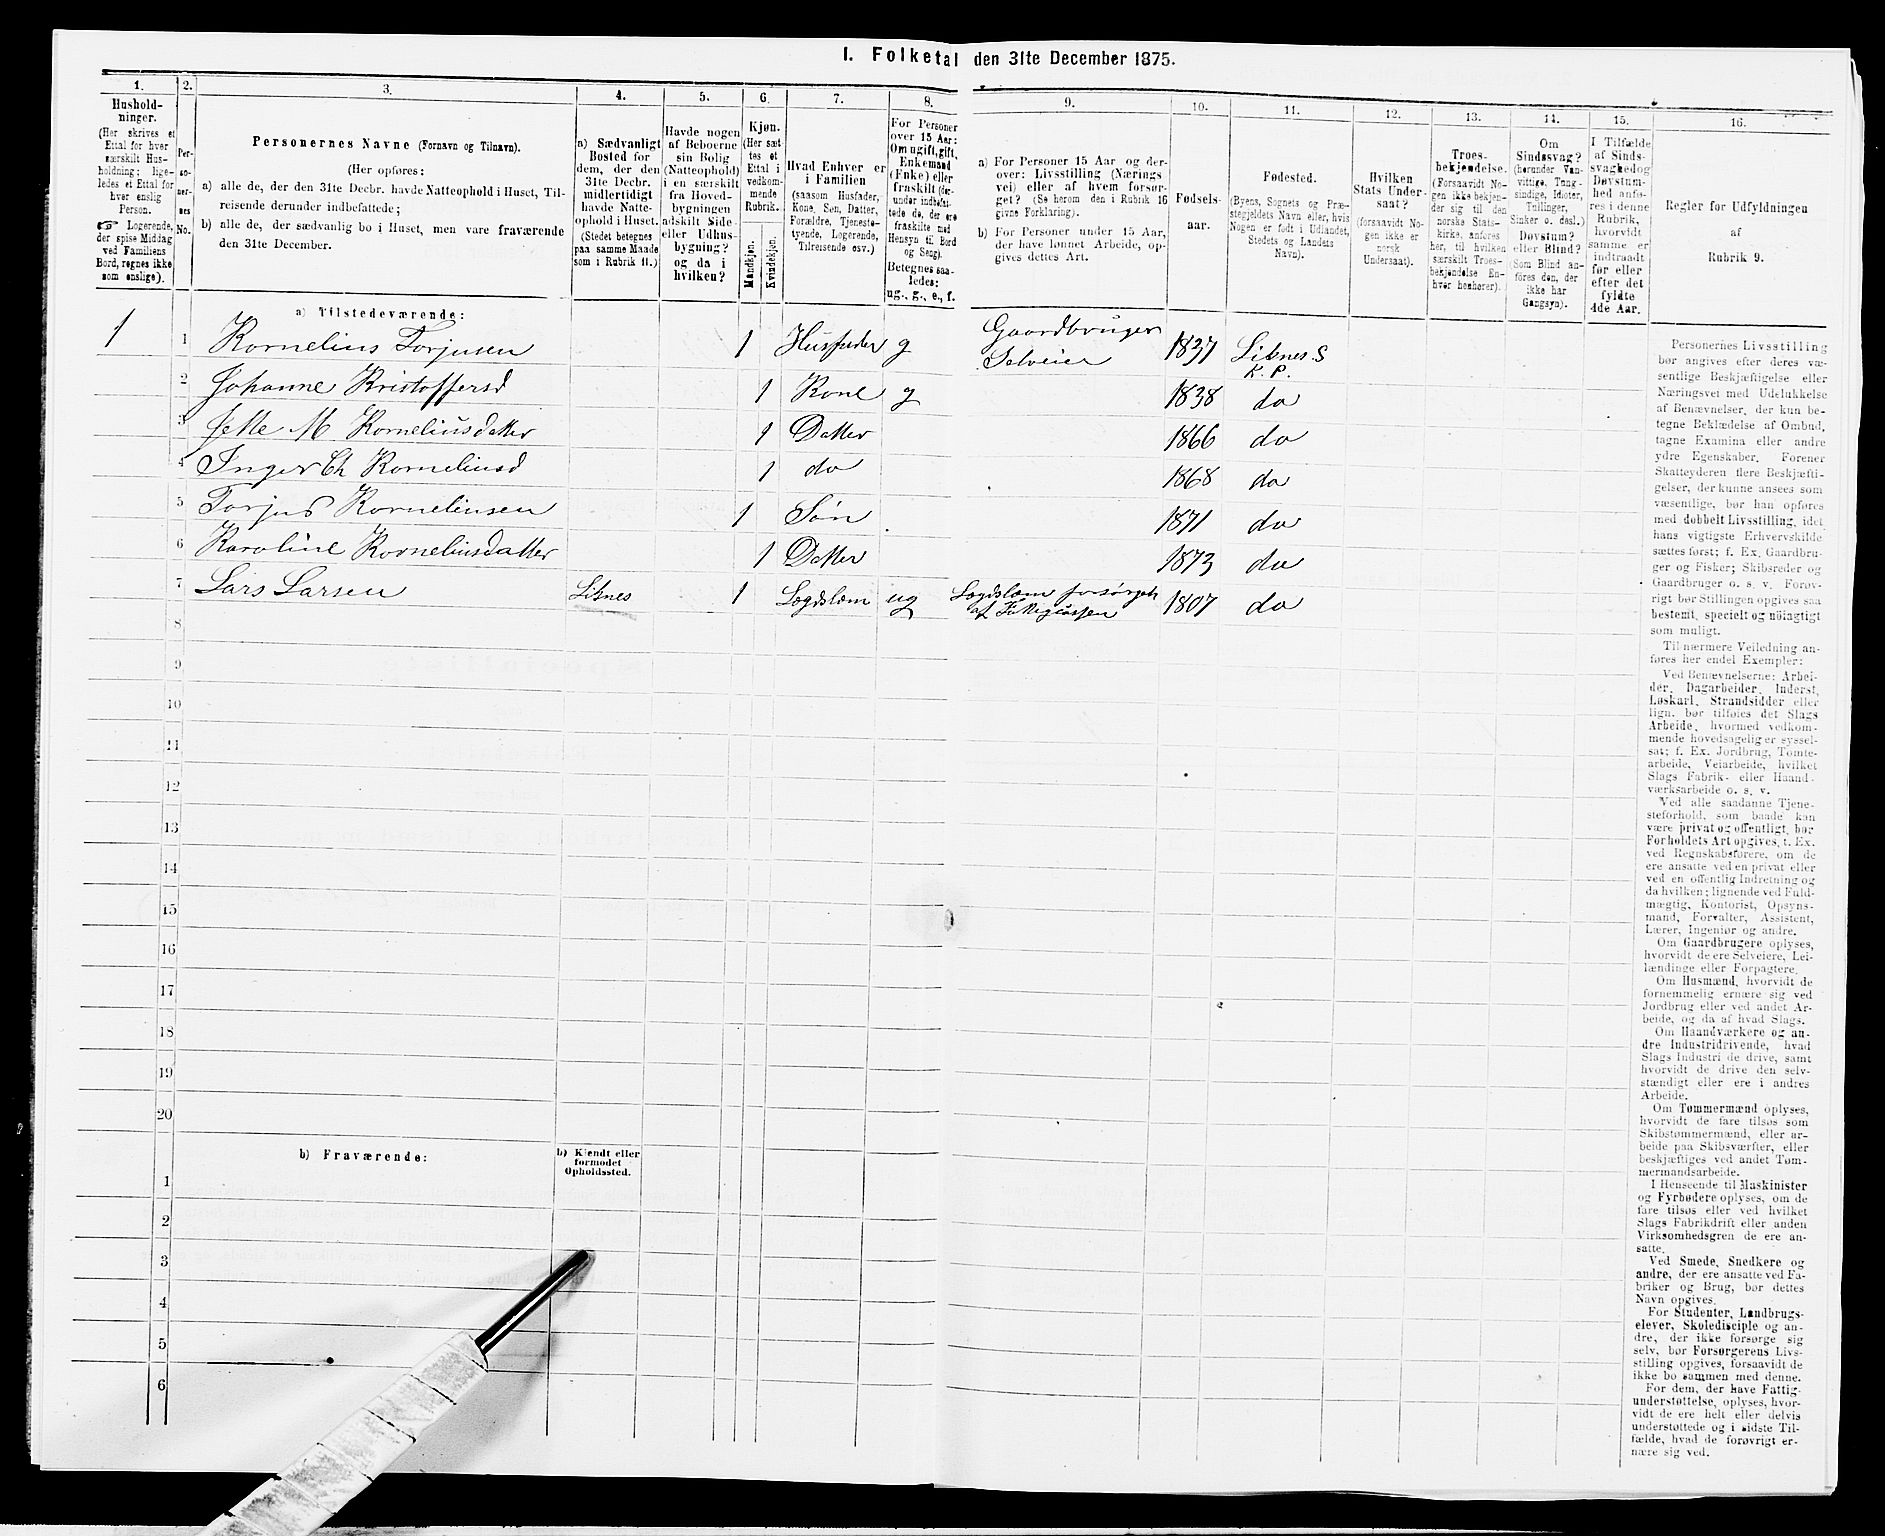 I. Folketal den 31te December 1875.
1.
Hushold-
ninger.
(Her skrives et
Ettal for hver
særskilt Hus-
holdning; lige-
ledes et Ettal for
hver enslig
Person.
☞ Logerende,
der spise Middag
ved Familiens
Bord, regnes ikke
som enslige).
2.
Per-
so-
ner-
nes
No.
3.
Personernes Navne (Fornavn og Tilnavn).
(Her opføres:
a) alle de, der den 31te Decbr. havde Natteophold i Huset, Til-
reisende derunder indbefattede;
b) alle de, der sædvanlig bo i Huset, men vare fraværende
den 31te December.
4.
a) Sædvanligt
Bosted for
dem, der den
31te Decbr.
midlertidigt
havde Natte-
ophold i Huset.
(Stedet betegnes
paa samme Maade
som i Rubrik 11.)
5.
Havde nogen
af Beboerne
sin Bolig
(Natteophold)
i en særskilt
fra Hoved-
bygningen
adskilt Side-
eller Udhus-
bygning?
og da i
hvilken?
6.
Kjøn.
(Her sæt-
tes et
Ettal i
vedkom-
mende
Rubrik.
Mandkjøn.
Kvindekjøn.
7.
Hvad Enhver er
i Familien
(saasom Husfader,
Kone, Søn, Datter,
Forældre, Tjeneste-
tyende, Logerende,
Tilreisende osv.)
8.
For Personer
over 15 Aar:
Om ugift, gift,
Enkemand
(Enke) eller
fraskilt (der-
under indbefat-
tede de, der ere
fraskilte med
Hensyn til Bord
og Seng).
Betegnes saa-
ledes:
ug., g., e., f.
9.
a) For Personer 15 Aar og der-
over: Livsstilling (Nærings
vei) eller af hvem forsør-
get? (Se herom den i Rubrik 16
givne Forklaring).
b) For Personer under 15 Aar,
der have lønnet Arbeide, op-
gives dettes Art.
10.
Fødsels-
aar.
11.
Fødested.
(Byens, Sognets og Præ-
stegjeldets Navn eller, hvis
Nogen er født i Udlandet,
Stedets og Landets
Navn).
12.
Hvilken
Stats Under-
saat?
(forsaavidt No-
gen ikke er
norsk
Undersaat).
13.
Troes-
bekjendelse.
(Forsaavidt No-
gen ikke bekjen-
der sig til den
norske Stats-
kirke, anføres
her, til hvilken
særskilt Troes-
bekjendelse En-
hver henhører).
14.
Om
Sindssvag?
(herunder Van-
vittige, Tung-
sindige, Idioter,
Tullinger,
Sinker o. desl.)
Døvstum?
eller Blind?
(Som Blind an-
føres den, der
ikke har
Gangsyn).
15.
I Tilfælde
af Sinds-
svaghed og
Døvstum-
hed anfø-
res i denne
Rubrik,
hvorvidt
samme er
indtraadt
før eller
efter det
fyldte
4de Aar.
16.
Regler for Udfyldningen
af
Rubrik 9.
a) Tilstedeværende:
1 1 Kornelius Torjusen 1 Husfader g Gaardbruger Selveier 1837 Liknes S K. P.
2 Johanne Kristoffersd 1 Kone g 1838 do
3 Jette M Korneliusdatter 1 Datter 1866 do
4 Inger Ch Korneliusd 1 do 1868 do
5 Torjus Korneliussen 1 Søn 1871 do
6 Karoline Korneliusdatter 1 Datter 1873 do
7 Lars Larsen Liknes 1 Lægdslem ug Lægdslem forsørges af Fattigcassen 1807 do
8
9
10
11
12
13
14
15
16
17
18
19
20
b) Fraværende:
b) Kjendt eller
formodet
Opholdssted.
1
2
3
4
5
6
Personernes Livsstilling
bør angives efter deres væ-
sentlige Beskjæftigelse eller
Næringsvei med Udelukkelse
af Benævnelser, der kun be-
tegne Beklædelse af Ombud,
tagne Examina eller andre
ydre Egenskaber. Forener
Skatteyderen flere Beskjæfti-
gelser, der kunne ansees som
væsentlige, bør han opføres
med dobbelt Livsstilling, idet
hans vigtigste Erhvervskilde
sættes først; f. Ex. Gaardbru-
ger og Fisker; Skibsreder og
Gaardbruger o. s. v. Forøv-
rigt bør Stillingen opgives saa
bestemt, specielt og nøiagtigt
som muligt.
Til nærmere Veiledning an-
føres her endel Exempler:
Ved Benævnelserne: Arbei-
der, Dagarbeider, Inderst,
Løskarl, Strandsidder eller
lign. bør tilføies det Slags
Arbeide, hvormed vedkom-
mende hovedsagelig er syssel-
sat; f. Ex. Jordbrug, Tomte-
arbeide, Veiarbeide, hvilket
Slags Fabrik- eller Haand-
værksarbeide o. s. v.
Ved alle saadanne Tjene-
steforhold, som baade kan
være privat og offentligt, bør
Forholdets Art opgives, t. Ex.
ved Regnskabsførere, om de
ere ansatte ved en privat eller
ved en offentlig Indretning og
da hvilken; lignende ved Fuld-
mægtig, Kontorist, Opsyns-
mand, Forvalter, Assistent,
Lærer, Ingeniør og andre.
Om Gaardbrugere oplyses,
hvorvidt de ere Selveiere, Lei-
lændinge eller Forpagtere.
Om Husmænd, hvorvidt de
fornemmelig ernære sig ved
Jordbrug eller ved andet Ar-
beide, og da af hvad Slags.
Om Haandværkere og an-
dre Industridrivende, hvad
Slags Industri de drive, samt
hvorvidt de drive den selv-
stændigt eller ere i andres
Arbeide.
Om Tømmermænd oplyses,
hvorvidt de fare tilsøs som
Skibstømmermænd, eller ar-
beide paa Skibsværfter, eller
beskjæftiges ved andet Tøm-
mermandsarbeide.
I Henseende til Maskinister
og Fyrbødere oplyses, om de
fare tilsøs eller ved hvilket
Slags Fabrikdrift eller anden
Virksomhedsgren de ere an-
satte.
Ved Smede, Snedkere og
andre, der ere ansatte ved Fa-
briker og Brug, bør dettes
Navn opgives.
For Studenter, Landbrugs-
elever, Skoledisciple og an-
dre, der ikke forsørge sig
selv, bør Forsørgerens Livs-
stilling opgives, forsaavidt de
ikke bo sammen med denne.
For dem, der have Fattig-
understøttelse, oplyses, hvor-
vidt de ere helt eller delvis
understøttede og i sidste Til-
fælde, hvad de forøvrigt er-
nære sig ved.